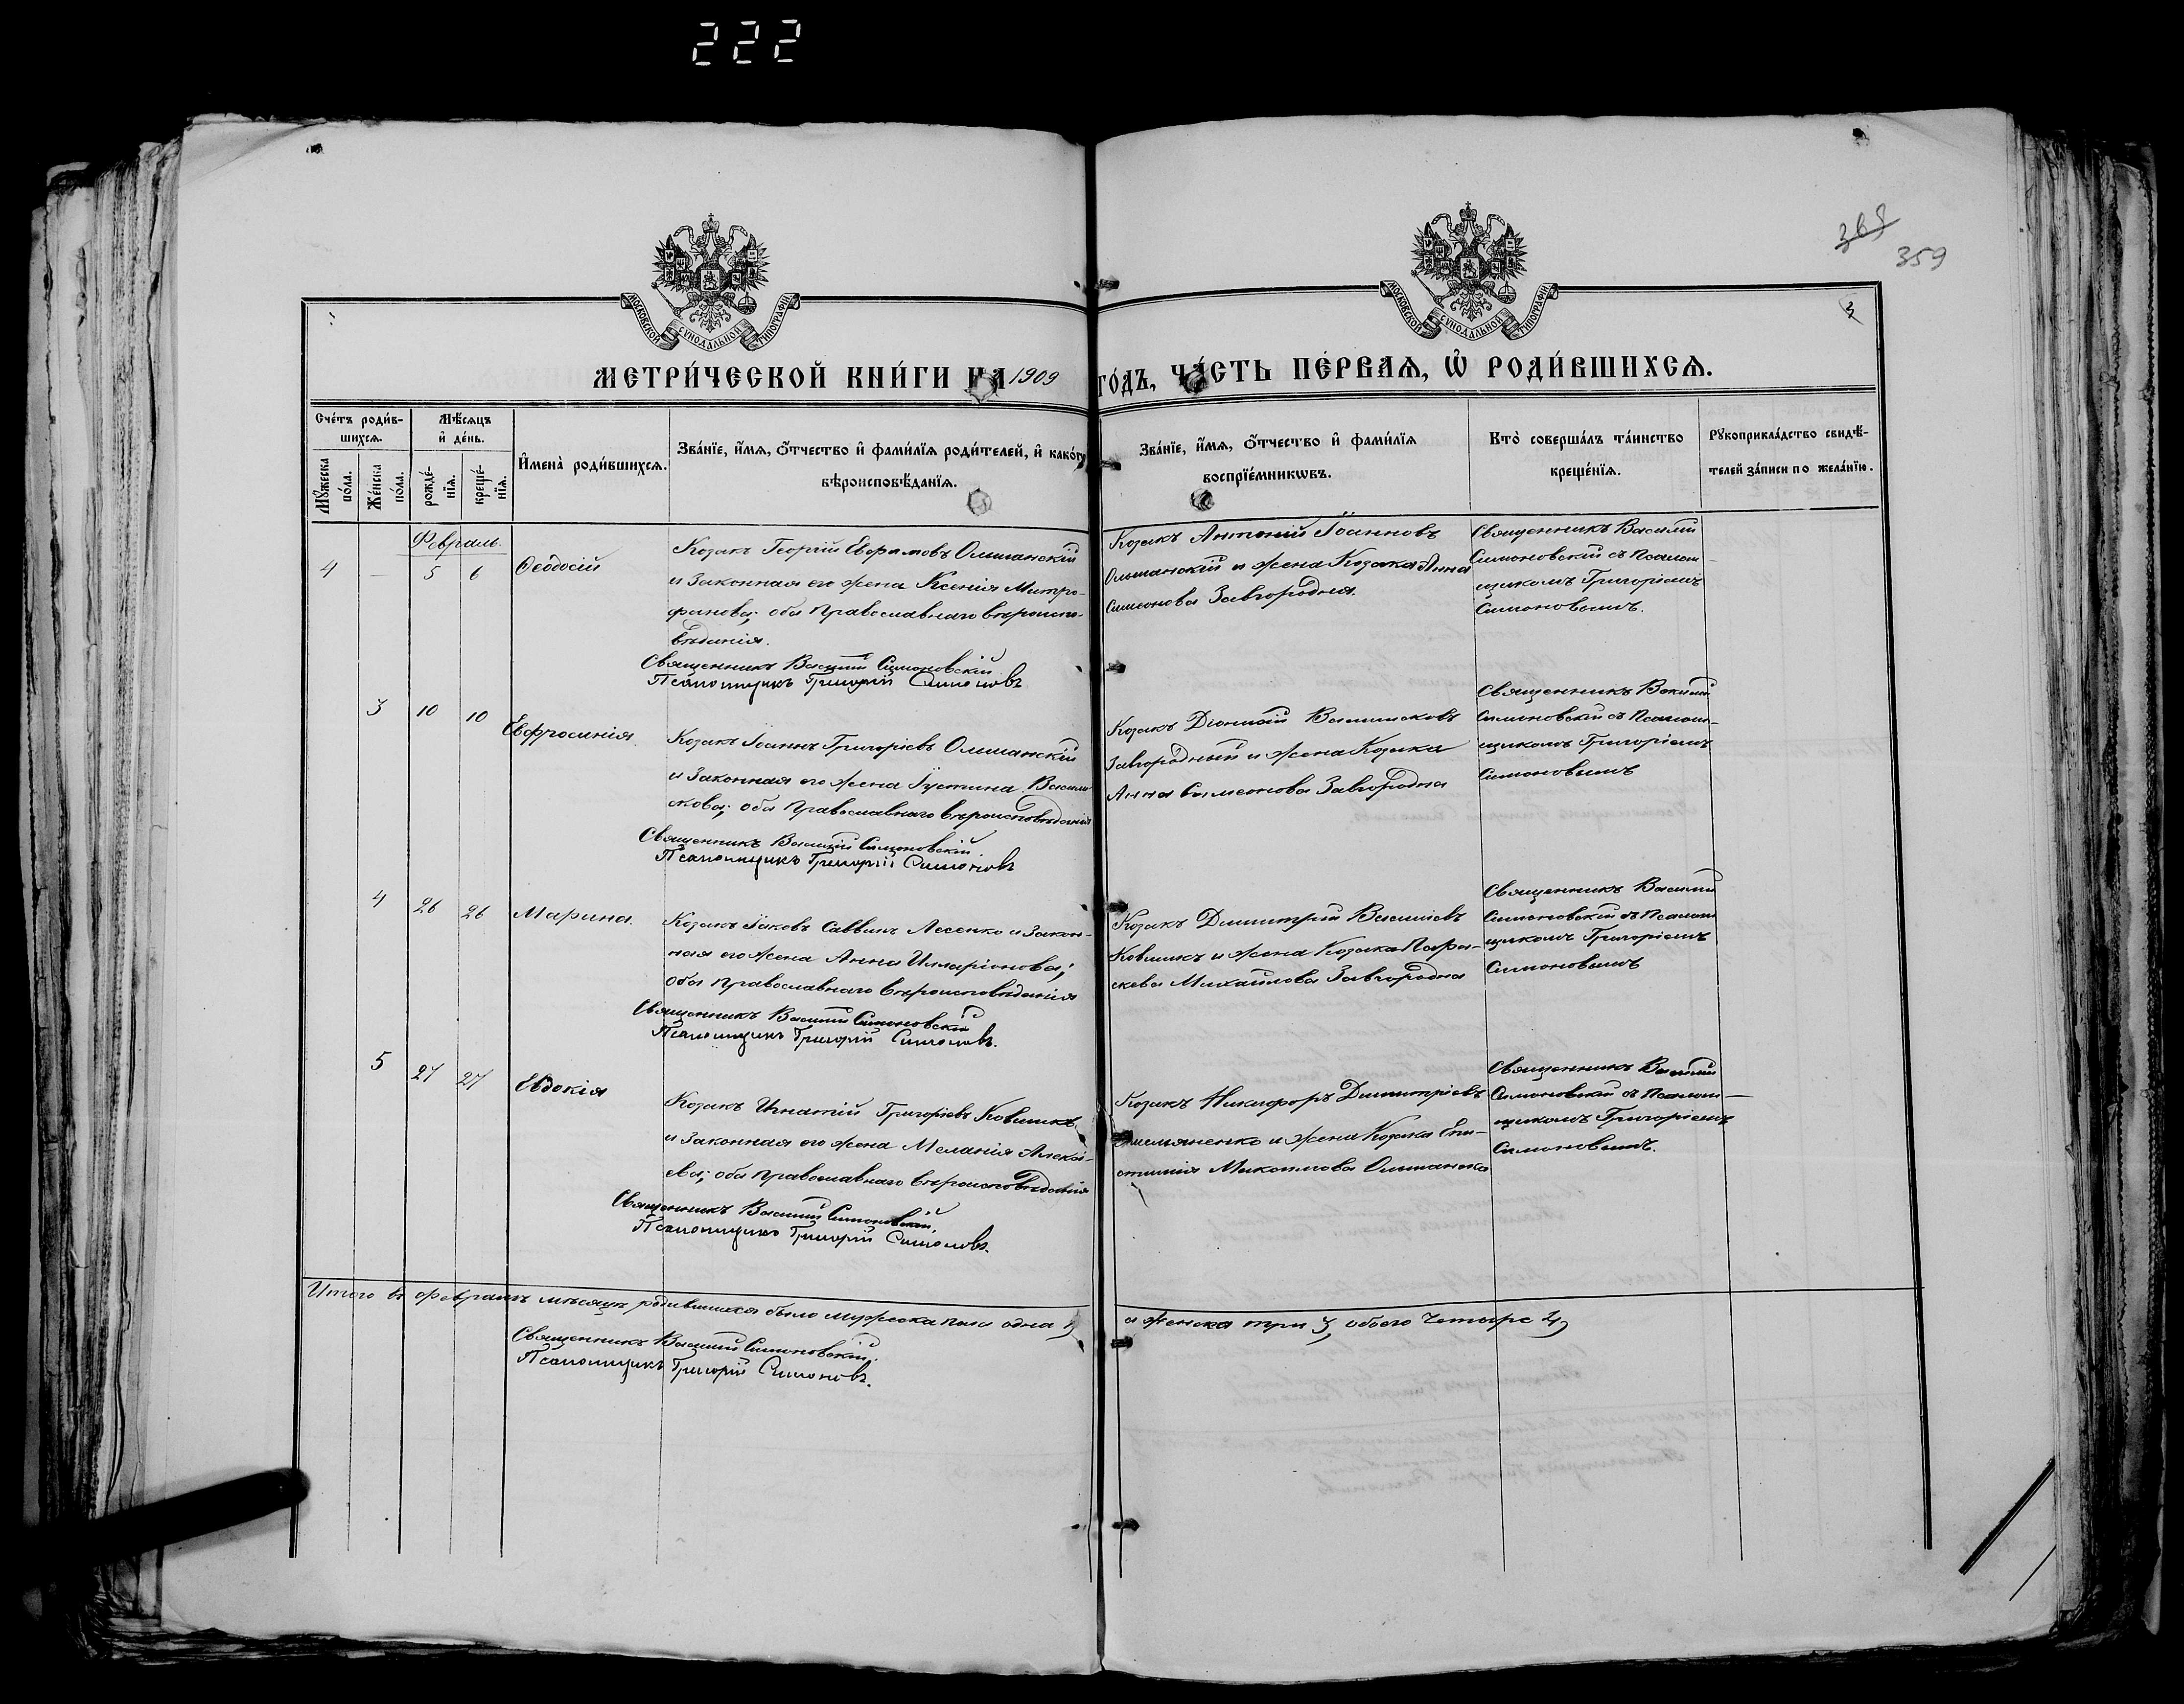 222
369
359
МОСКОВСКОЙ СѴНОДАЛЬНОЙ ТИПОГРАФІИ
МОСКОВСКОЙ СѴНОДАЛЬНОЙ ТИПОГРАФІИ
3
МЕТРИ́ЧЕСКОЙ КНИ́ГИ НА 1909 ГО́ДЪ, ЧА́СТЬ ПЕ́РВАѦ, Ѡ҆ РОДИ́ВШИХСѦ.
Сче́тъ роди́в-
шихсѧ.
Мꙋ́жеска по́ла.
Же́нска по́ла.
Мѣ́сѧцъ
и҆ де́нь.
рожде́-
нїѧ.
креще́-
нїѧ.
И҆мена̀ роди́вшихсѧ.
Зва́нїе, и҆́мѧ, ѻ҆́тчество и҆ фами́лїѧ роди́телей, и҆ како́гѡ
вѣроисповѣ́данїѧ.
Зва́нїе, и҆́мѧ, ѻ҆́тчество и҆ фами́лїѧ
воспрїе́мникѡвъ.
Кто̀ соверша́лъ та́инство
креще́нїѧ.
Рꙋкоприкла́дство свидѣ́-
телей за́писи по жела́нїю.
Февраль.
4 — 5 6 Ѳеодосій
Козакъ Георгій Евфимовъ Ольшанскій
и законная его жена Ксенія Митро-
фанова; оба православнаго вѣроиспо-
вѣданія.
Священникъ Василій Симоновскій
Псаломщикъ Григорій Симоновъ
Козакъ Антоній Іоанновъ
Ольшанскій и жена Козака Анна
Симеонова Завгородняя.
Священникъ Василій
Симоновскій съ Псалом-
щикомъ Григоріемъ
Симоновымъ.
3 10 10 Евфросинія.
Козакъ Іоаннъ Григоріевъ Ольшанскій
и законная его жена Іустина Василь-
кова; оба православнаго вѣроисповѣданія
Священникъ Василій Симоновскій.
Псаломщикъ Григорій Симоновъ
Козакъ Діонисій
Завгородный и жена Козака
Анна Симеонова Завгородна
Священникъ Василій
Симоновскій съ Псалом-
щикомъ Григоріемъ
Симоновымъ
4 26 26 Марина.
Козакъ Іаковъ Саввинъ Лесенко и закон-
ная его жена Анна Илларіонова;
оба православнаго вѣроисповѣданія
Священникъ Василій Симоновскій
Псаломщикъ Григорій Симоновъ.
Козакъ Димитрій Василіевъ
Ковшикъ и жена Козака Пара-
скева Михайлова Завгородна
Священникъ Василій
Симоновскій съ Псалом-
щикомъ Григоріемъ
Симоновымъ
5 27 27 Евдокія
Козакъ Игнатій Григоріевъ Ковшикъ
и законная его жена Меланія Алексі-
ева; оба православнаго вѣроисповѣданія
Священникъ Василій Симоновскій.
Псаломщикъ Григорій Симоновъ.
Козакъ Никифоръ Димитріевъ
Омельяненко и жена Козака Епи-
стимія Максимова Ольшанска
Священникъ Василій
Симоновскій съ Псалом-
щикомъ Григоріемъ
Симоновымъ.
Итого въ февралѣ мѣсяцѣ родившихся было мужеска пола одна 1, а женска три 3, обоего четыре 4,
Священникъ Василій Симоновскій.
Псаломщикъ Григорій Симоновъ.